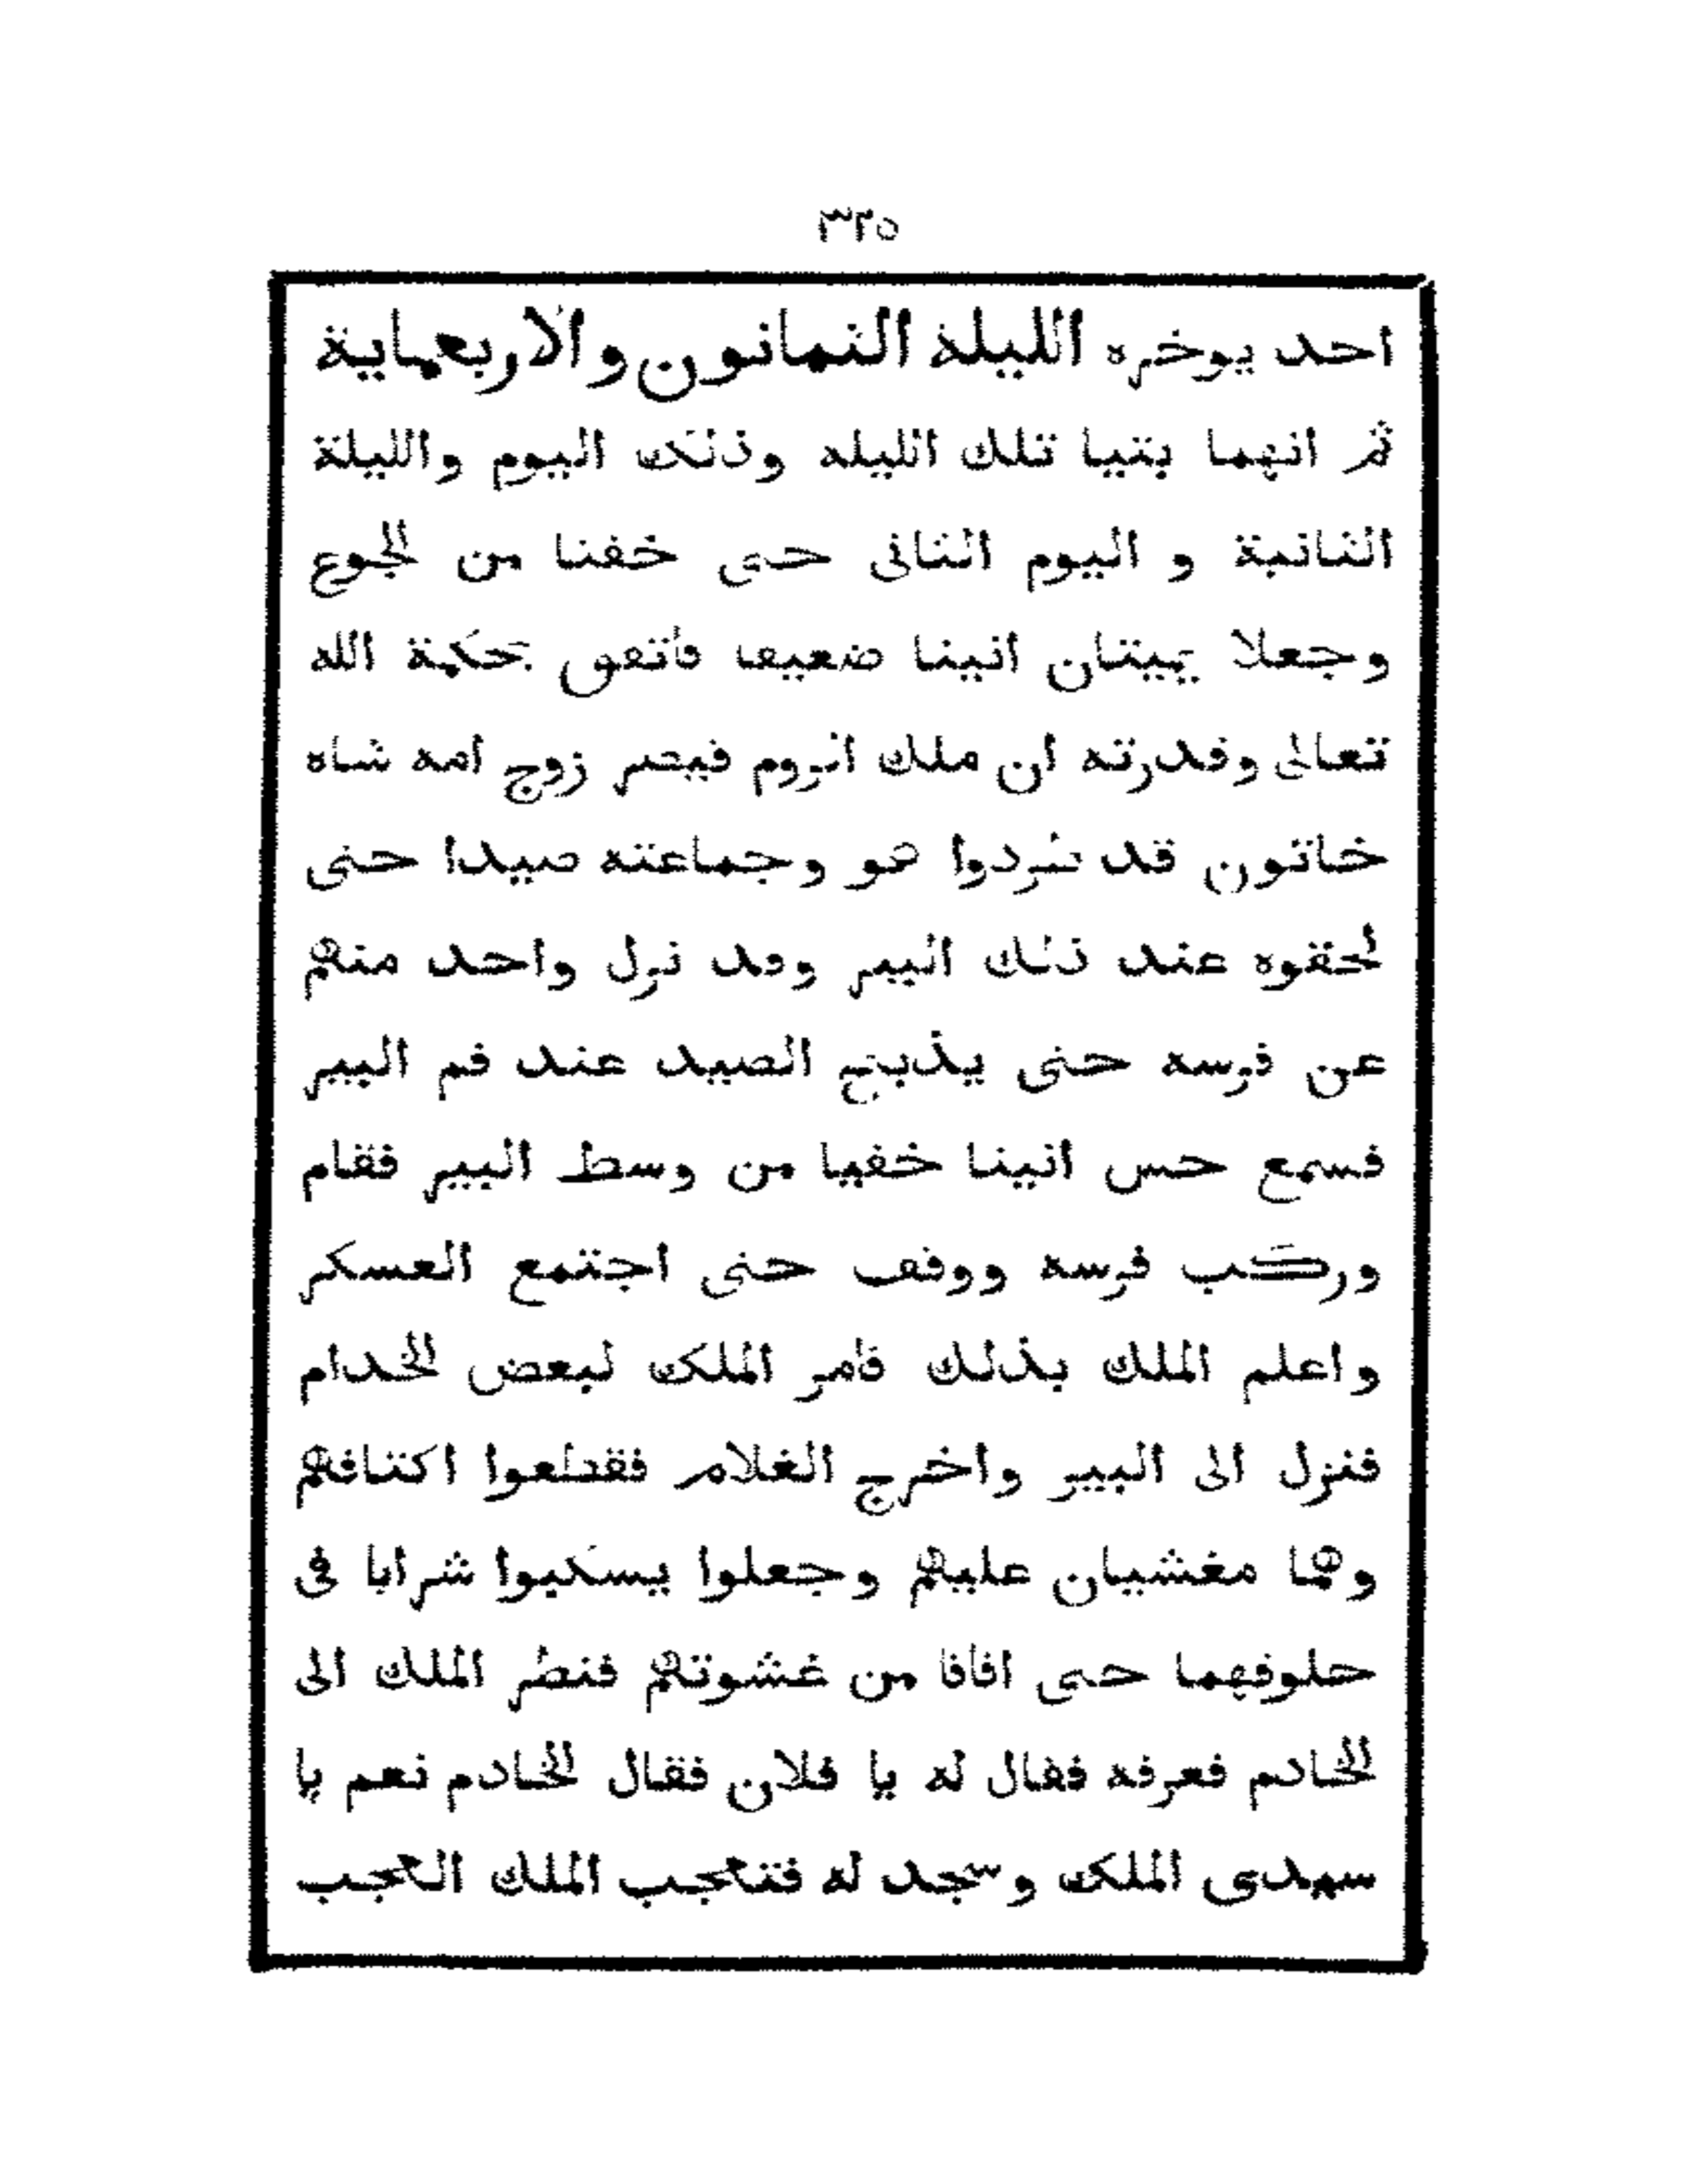 ٣٢٥
احد يوخره الليلة الثمانون والاربعماية
ثم انهما بقيا تلك الليله وذلك اليوم والليلة
الثانية و اليوم الثانى حتى خفتا من الجوع
وجعلا يميتان انينا ضعيفا فاتفق بحكمة الله
تعالى وقدرته ان ملك الروم قيصر زوج امه شاه
خاتون قد شردوا هو وجماعته صيدا حتى
لحقوه عند ذلك البير وقد نزل واحد منهم
عن فرسه حتى يذبح الصيد عند فم البير
فسمع حس انينا خفيا من وسط البير فقام
وركب فرسه ووقف حتى اجتمع العسكر
واعلم الملك بذلك فامر الملك لبعض الخدام
فنزل الى البير واخرج الغلام فقطعوا اكتافهم
وهما مغشيان عليهم وجعلوا يسكبوا شرابا فى
حلوقهما حتى افاقا من غشوتهم فنظر الملك الى
الخادم فعرفه فقال له يا فلان فقال الخادم نعم يا
سيدى الملك وسجد له فتعجب الملك العجب